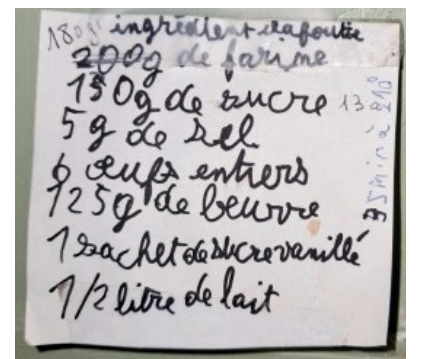 180g ingrédient clafoutie
200g de farine
150g de sucre 13
5g de sel
6 œufs entiers
125g de beurre
1 sachet de sucre vanillé
1/2 litre de lait
35 min à 210°